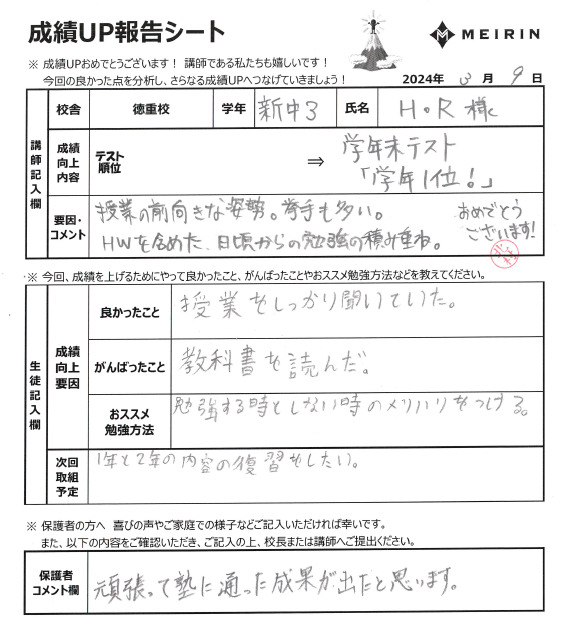 成績UP報告シート
MEIRIN
※ 成績UPおめでとうございます！ 講師である私たちも嬉しいです！
今回の良かった点を分析し、さらなる成績UPへつなげていきましょう！
2024年 3 月 9 日
講師記入欄
校舎 徳重校 学年 新中3 氏名 H・R 様
成績向上内容
テスト順位 ⇒ 学年末テスト
「学年1位！」
要因・コメント
授業の前向きな姿勢。挙手も多い。
HWを含めた、日頃からの勉強の積み重ね。
おめでとう
ございます！
※ 今回、成績を上げるためにやって良かったこと、がんばったことやおススメ勉強方法などを教えてください。
生徒記入欄
成績向上要因
良かったこと 授業をしっかり聞いていた。
がんばったこと 教科書を読んだ。
おススメ勉強方法 勉強する時としない時のメリハリをつける。
次回取組予定 1年と2年の内容の復習をしたい。
※ 保護者の方へ 喜びの声やご家庭での様子などご記入いただければ幸いです。
また、以下の内容をご確認いただき、ご記入の上、校長または講師へご提出ください。
保護者コメント欄 頑張って塾に通った成果が出たと思います。